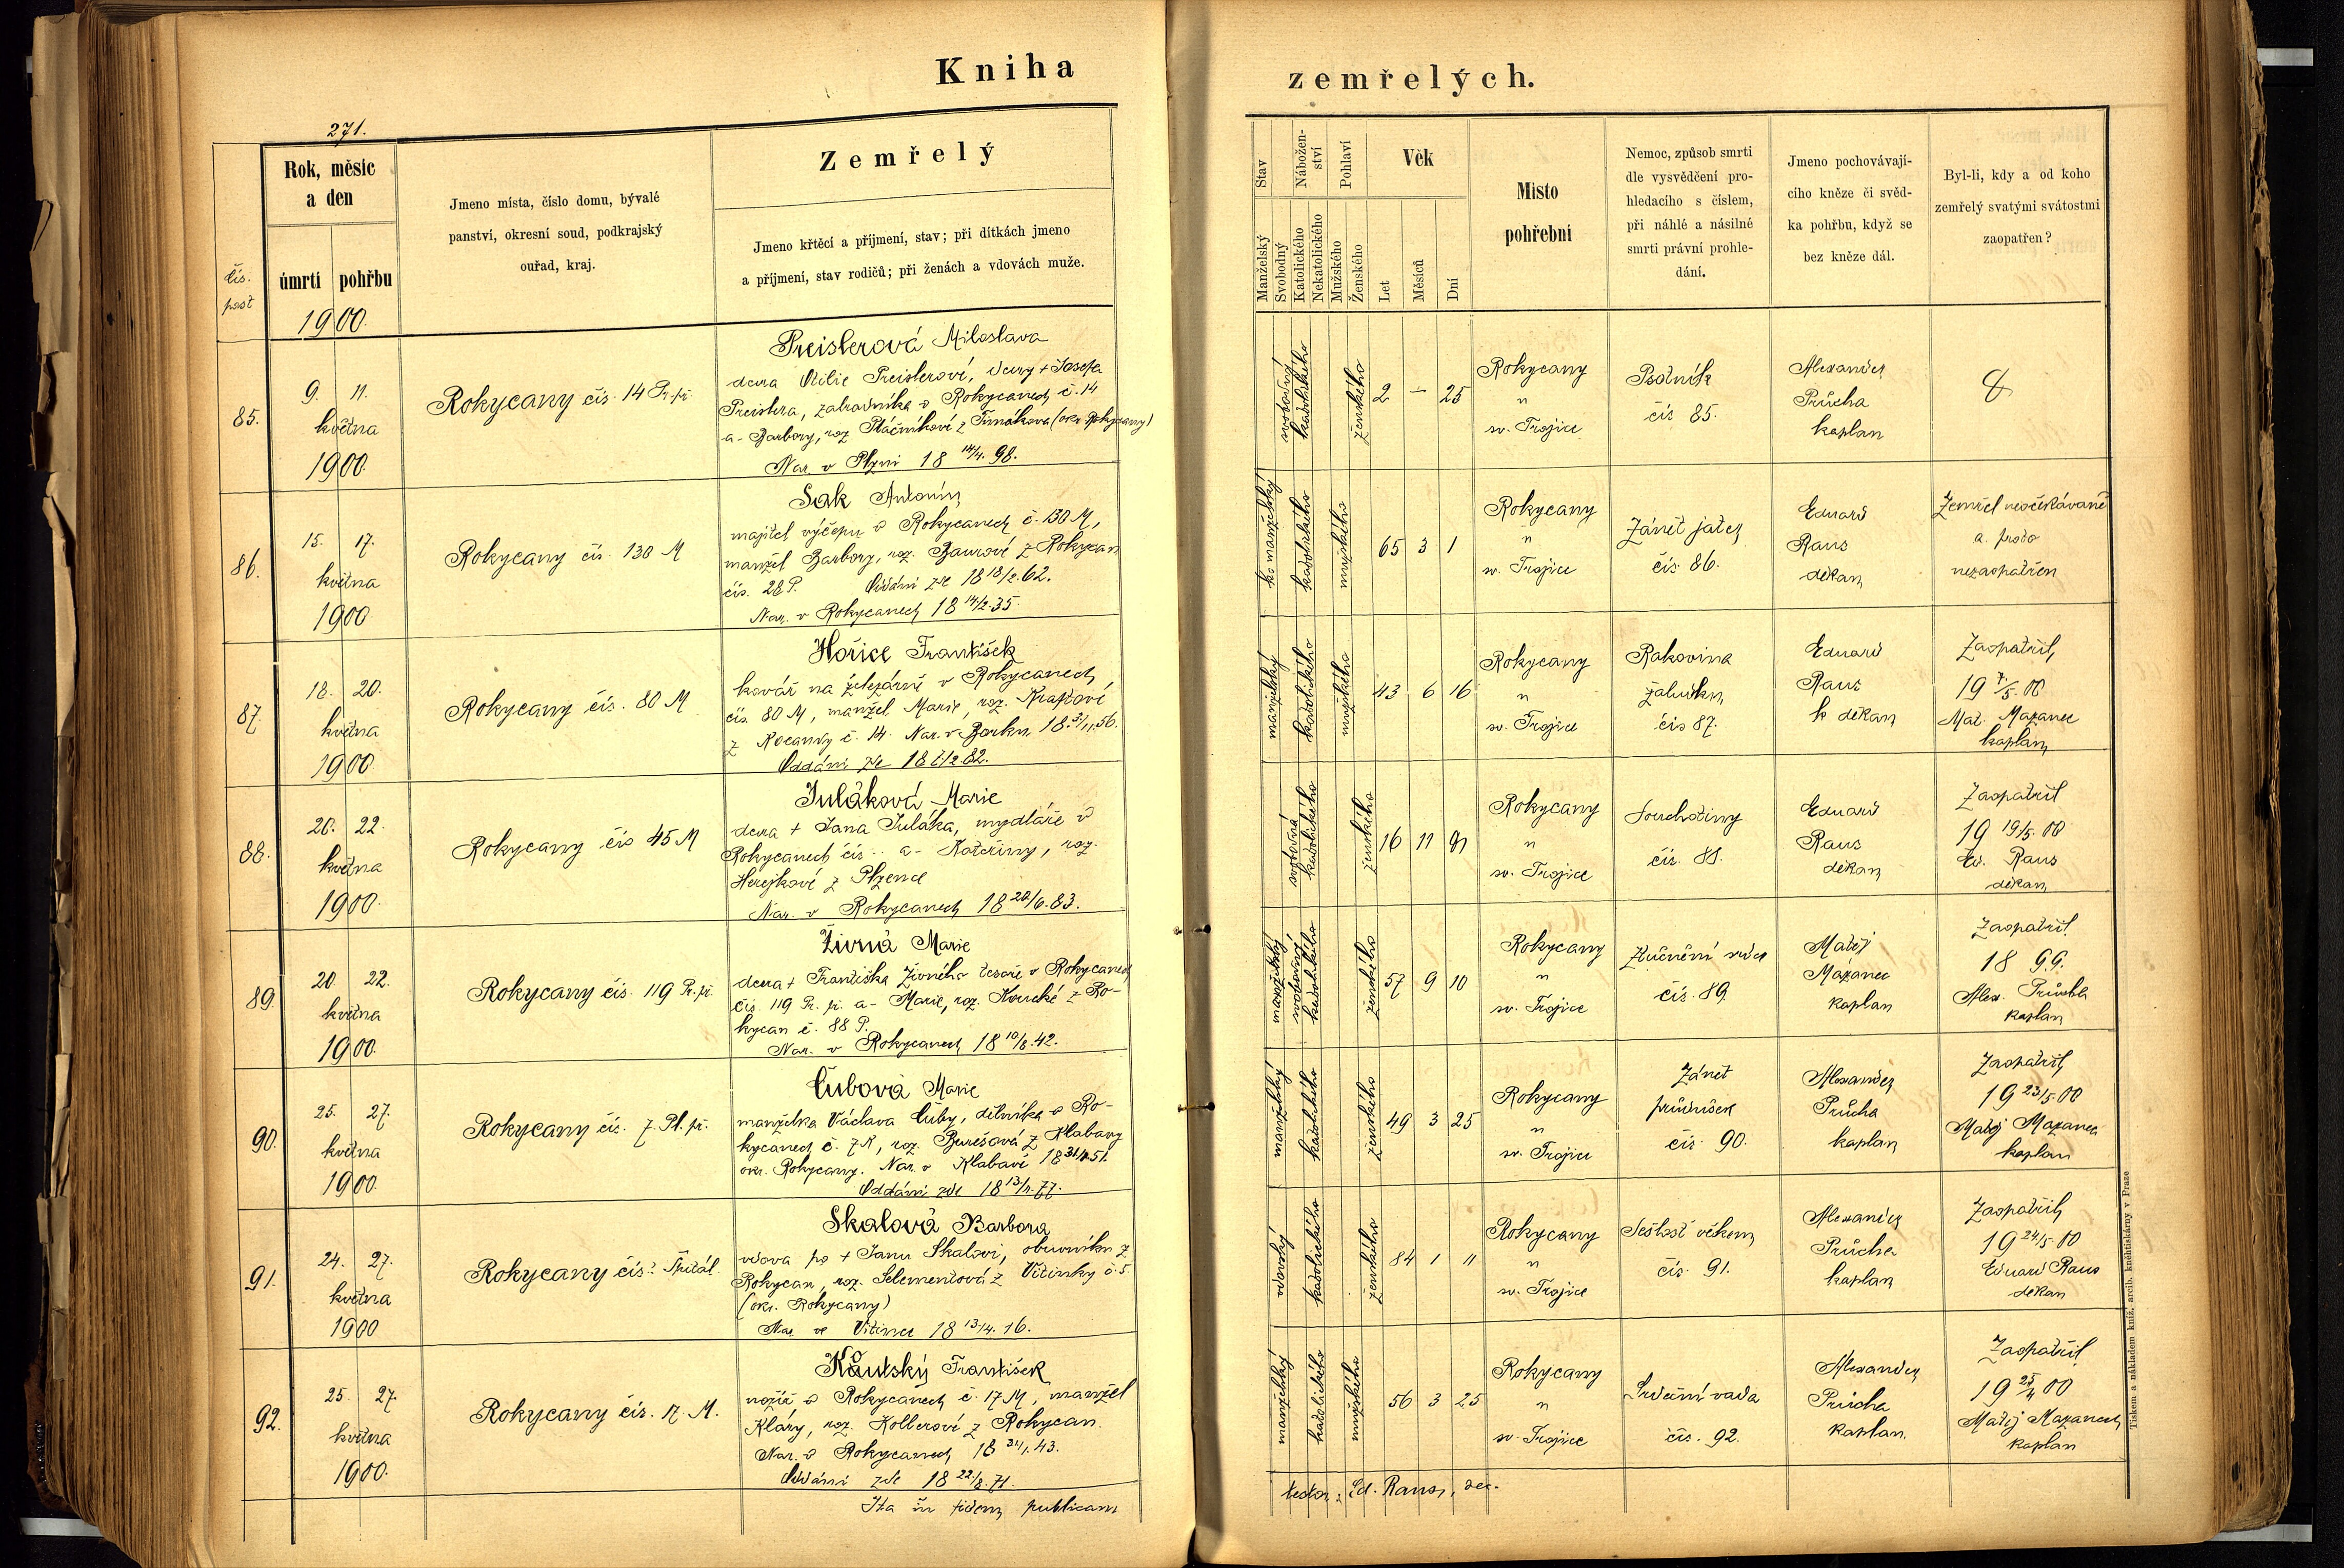 Kniha
zemřelých.
271.
Rok, měsíc
a den
úmrtí
pohřbu
1900.
čís.
Jmeno místa, číslo domu, bývalé
panství, okresní soud, podkrajský
ouřad, kraj.
Zemřelý
Jmeno křtěcí a příjmení, stav; při dítkách jmeno
a příjmení, stav rodičů; při ženách a vdovách muže.
Stav
Manželský
Svobodný
Nábožen-
ství
Katolického
Nekatolického
Pohlaví
Mužského
Ženského
Věk
Let
Měsíců
Dní
Místo
pohřební
Nemoc, způsob smrti
dle vysvědčení pro-
hledacího s číslem,
při náhlé a násilné
smrti právní prohle-
dání.
Jmeno pochovávají-
cího kněze či svěd-
ka pohřbu, když se
bez kněze dál.
Byl-li, kdy a od koho
zemřelý svatými svátostmi
zaopatřen?
85.
9. 11.
května
1900.
Rokycany čís. 14 Pr. př.
Preislerová Miloslava
dcera Otilie Preislerové, dcery + Josefa
Preislera, zahradníka v Rokycanech č. 14
a - Barbory, roz. Ptáčníkové z (okr. Rokycany)
Nar. v Plzni 18 14/4. 98.
katolického
ženského
2 — 25
Rokycany
"
sv. Trojice
Psotník
čís 85.
Alexander
Průcha
kaplan
86.
15. 17.
května
1900
Rokycany čís. 130 M
Sak Antonín
majitel výčepu v Rokycanech č. 130 M,
manžel Barbory, roz. Baurové z Rokycan
čís. 28 P. Oddáni zde 18 18/2. 62.
Nar. v Rokycanech 18 14/2. 35.
manželský
katolického
mužského
65 3 1
Rokycany
"
sv. Trojice
Zánět jater
čís. 86.
Eduard
Raus
děkan
Zemřel neočekávaně
a proto
nezaopatřen
87.
18. 20.
května
1900
Rokycany čís. 80 M
Hořice František
kovář na železárně v Rokycanech,
čís. 80 M, manžel Marie, roz.
z č. 14. Nar. v Borku
Oddáni zde
manželský
katolického
mužského
43 6 16
Rokycany
"
sv. Trojice
Rakovina
žaludku
čís 87.
Eduard
Raus
děkan
Zaopatřil
19 00
Mat. Mazanec
kaplan
88.
20. 22.
května
1900.
Rokycany čís 45 M
Juláková Marie
dcera + Jana Juláka, mydláře v
Rokycanech čís .. a - Kateřiny, roz.
Herejkové z Plzence
Nar. v Rokycanech 18 20/6. 83.
svobodná
katolického
ženského
16 11
Rokycany
"
sv. Trojice
Souchotiny
čís. 88.
Eduard
Raus
děkan
Zaopatřil
19 19/5. 00
Ed. Raus
děkan
89.
20 22.
května
1900.
Rokycany čís. 119 Pr. př.
Živná Marie
dcera + Františka Živného tesaře v Rokycanech
čís. 119 Pr. př. a - Marie, roz. Koucké z Ro-
kycan č. 88 P.
Nar. v Rokycanech 18 10/8. 42.
katolického
ženského
57 9 10
Rokycany
"
sv. Trojice
čís. 89.
Matěj
Mazanec
kaplan
Zaopatřil
18 99.
Alex. Průcha
kaplan
90.
25. 27.
května
1900.
Rokycany čís. 7 Pl. př.
Čubová Marie
manželka Václava Čuby, dělníka v Ro-
kycanech č. 7, roz. Burešová z Klabavy
okr. Rokycany. Nar. v Klabavě
Oddáni zde 18 77.
manželský
katolického
ženského
49 3 25
Rokycany
"
sv. Trojice
Zánět
průdušek
čís. 90.
Alexander
Průcha
kaplan
Zaopatřil
19 23/5. 00
Matěj Mazanec
kaplan
91.
24. 27.
května
1900
Rokycany čís. Špitál
Skalová Barbora
vdova po + Janu Skalovi, obuvníku z
Rokycan, roz. Selementová z Vitinky č. 5.
(okr. Rokycany)
Nar. ve Vitinci 18 13/4. 16.
vdovský
katolického
ženského
84 1 11
Rokycany
"
sv. Trojice
Sešlost věkem
čís. 91.
Alexander
Průcha
kaplan
Zaopatřil
19 24/5. 00
Eduard Raus
děkan
92.
25. 27.
května
1900.
Rokycany čís. 17 M.
Koutský František
nožíř v Rokycanech č. 17 M, manžel
Kláry, roz. Kolberové z Rokycan.
Nar. v Rokycanech 18 31/1. 43.
Oddáni zde 18 22/8. 71.
manželský
katolického
mužského
56 3 25
Rokycany
"
sv. Trojice
Srdeční vada
čís. 92.
Alexander
Průcha
kaplan
Zaopatřil
19 00
Matěj Mazanec
kaplan
Ita in fidem publicam
testor: Ed. Raus, dec.
Tiskem a nákladem kníž. arcib. knihtiskárny v Praze